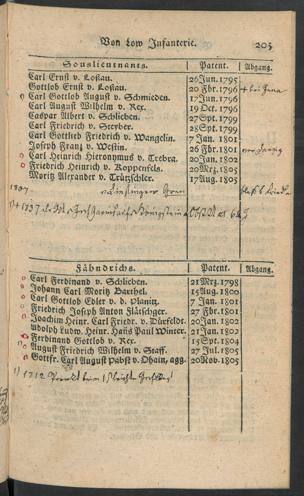 Von Low Infanterie. 203
Souslieutnants. Patent. Abgang.
Carl Ernst v. Loßau. 26 Jun. 1795
Gottlob Ernst v. Loßau. 20 Fbr. 1796
Carl Gottlob August v. Schmieden. 17 Jun. 1796
Carl August Wilhelm v. Rex. 19 Oct. 1796
Caspar Albert v. Schlieben. 27 Spt. 1799
Carl Friedrich v. Sperber. 28 Spt. 1799
Carl Gottlieb Friedrich v. Wangelin. 7 Jan. 1801
Joseph Franz v. Westin. 26 Fbr. 1802
Carl Heinrich Hieronymus v. Trebra. 20 Jan. 1802
Friedrich Heinrich v. Koppenfels. 20 Mrz. 1805
Moritz Alexander v. Trützschler. 17 Aug. 1805
Fähndrichs. Patent. Abgang.
Carl Ferdinand v. Schlieben. 21 Mrz. 1798
Johann Carl Moritz Barthel. 15 Aug. 1800
Carl Gottlob Edler v. d. Planitz. 7 Jan. 1801
Friedrich Joseph Anton Flätschger. 27 Fbr. 1801
Joachim Heinr. Carl Friedr. v. Dürfeldt. 20 Jan. 1802
Adolph Ludw. Heinr. Hans Paul Winter. 21 Jan. 1802
Ferdinand Gottlob v. Rex. 15 Spt. 1804
August Friedrich Wilhelm v. Staff. 27 Jul. 1805
Gottfr. Carl August Pabst v. Ohain, agg. 20 Nov. 1805